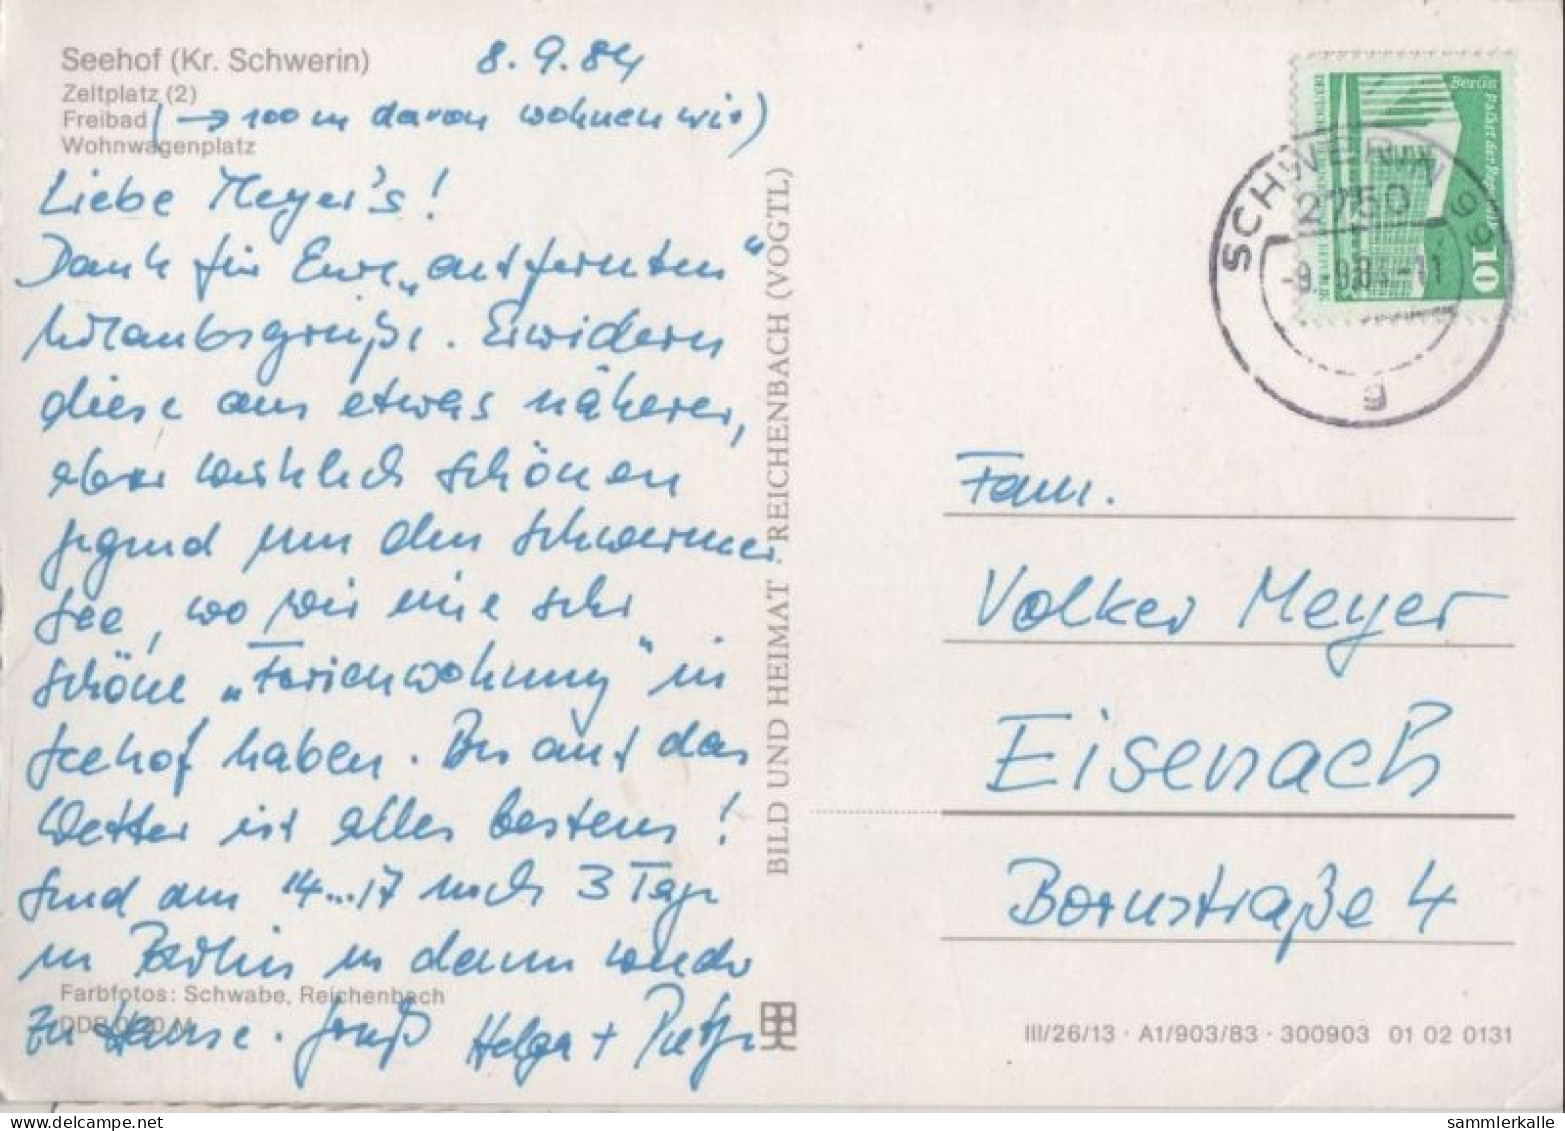 Seehof (Kr. Schwerin)
8.9.84
Zeltplatz (2)
Freibad (→ 100 m davon wohnen wir)
Wohnwagenplatz
Liebe Meyer's!
Dank für Eure „entfernten"
Urlaubsgrüße. Erwidern
diese aus etwas näherer,
aber wirklich schönen
Gegend um den Schweriner
See, wo wir eine sehr
schöne „Ferienwohnung" in
Seehof haben. Bis auf das
Wetter ist alles bestens!
Sind am 14...17 noch 3 Tage
in Berlin u dann wieder
Farbfotos: Schwabe, Reichenbach
zu Hause. Gruß Helga +
DDR
BILD UND HEIMAT · REICHENBACH (VOGTL)
Berlin Palast der Republik
10
SCHWERIN 99
2750
-9.-9.84-11
g
Fam.
Volker Meyer
Eisenach
Bornstraße 4
III/26/13 · A1/903/83 · 300903 01 02 0131
www.delcampe.net
sammlerkalle